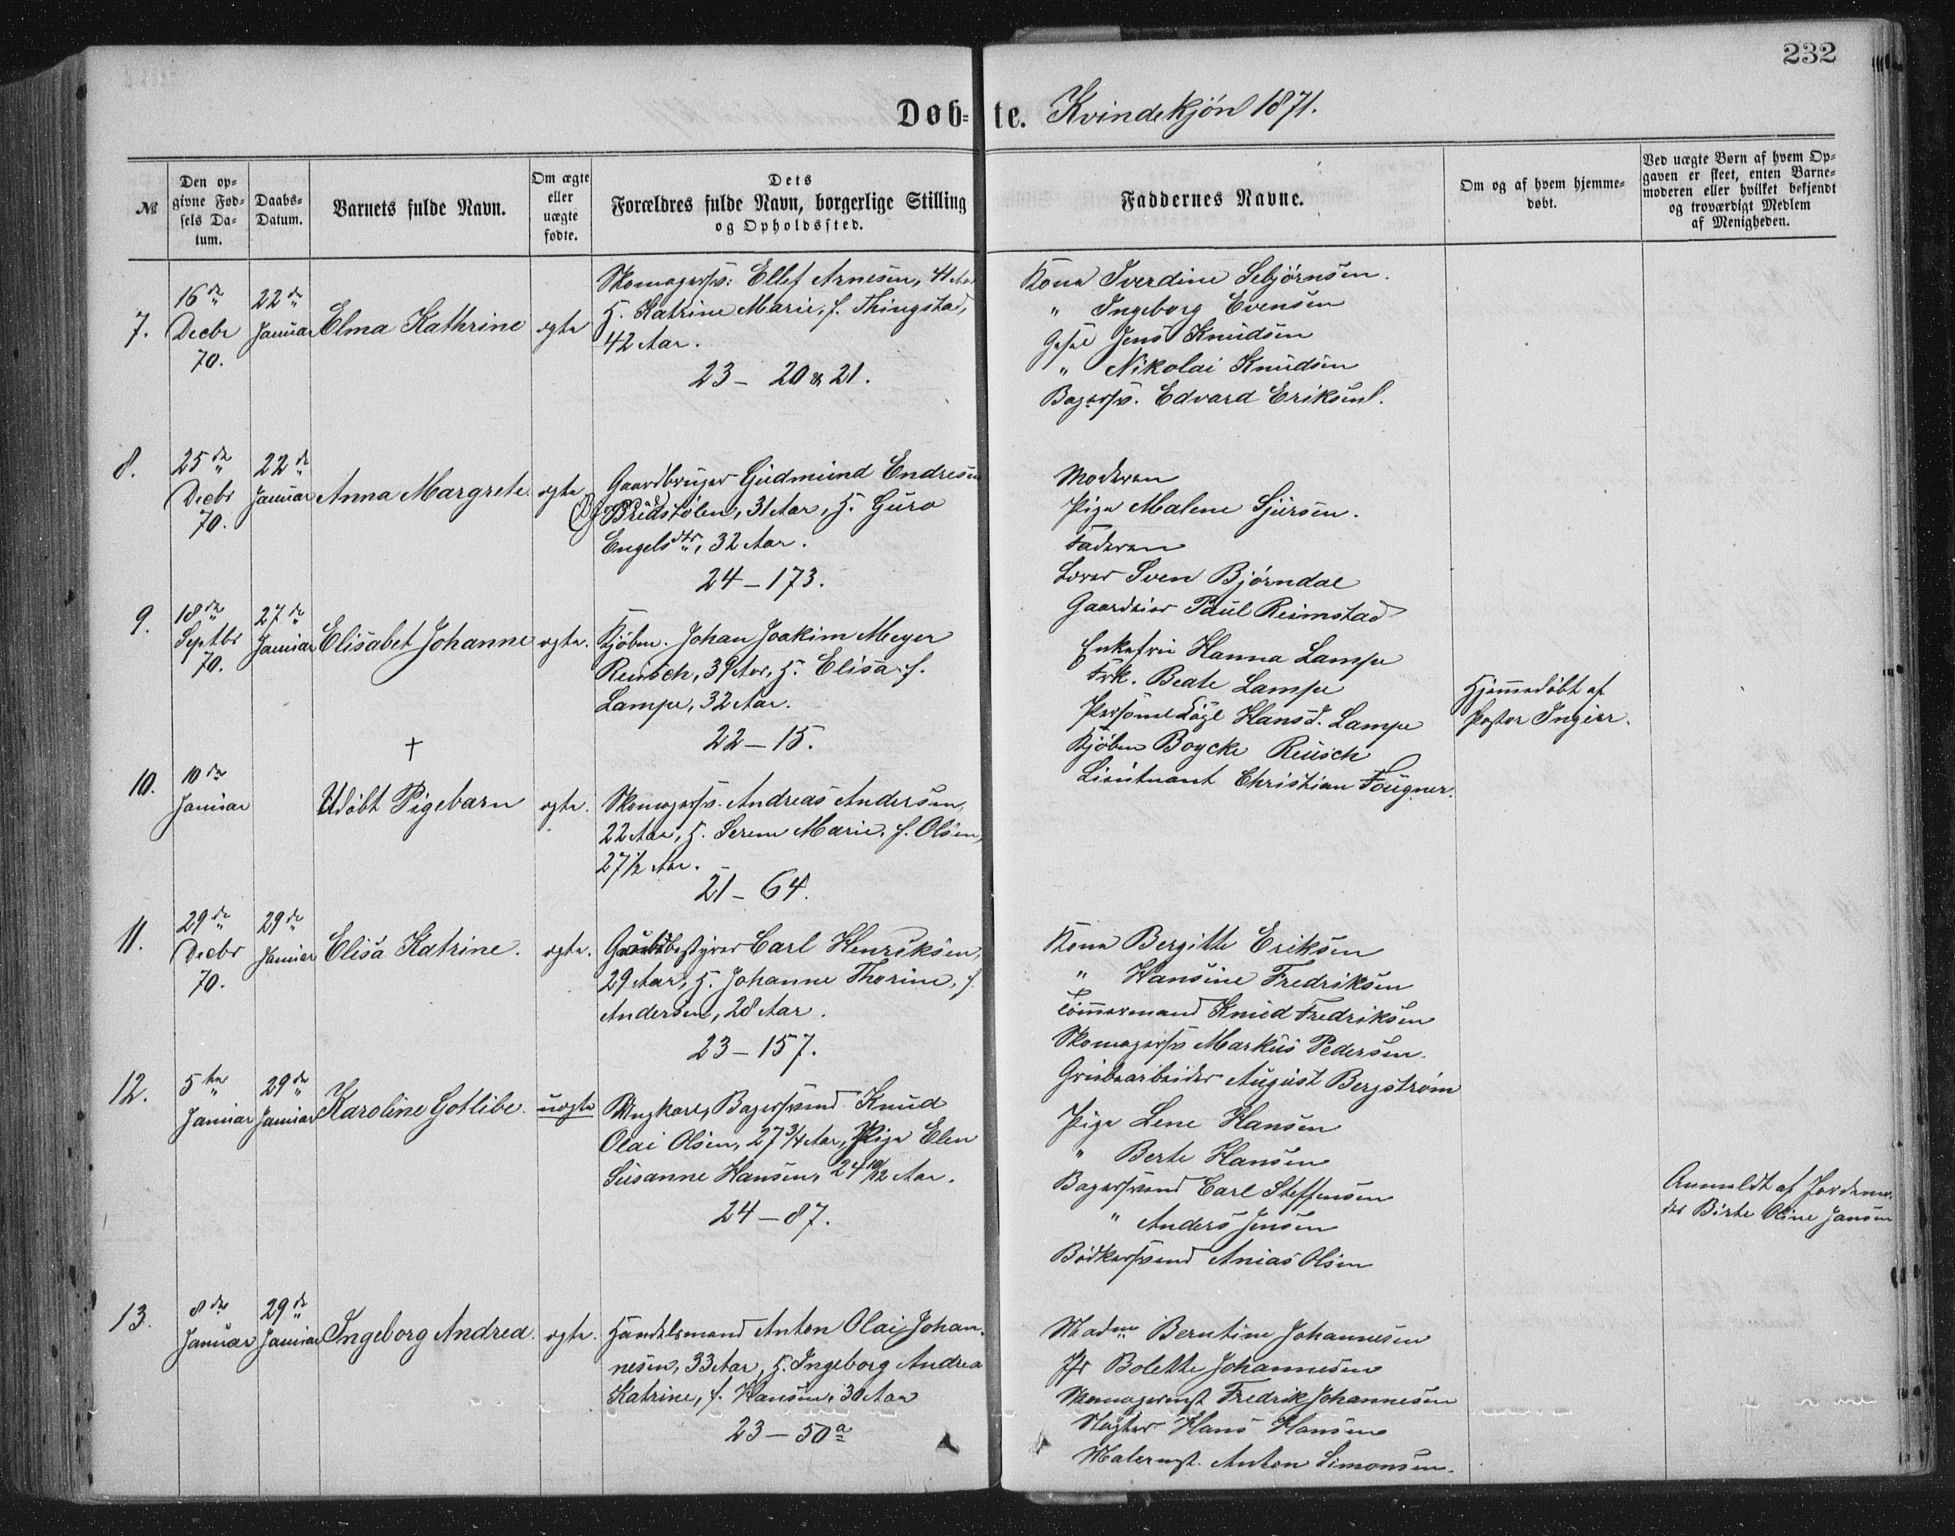 232
Døb- te. Kvindekjön 1871.
№
Den op-
givne Fød-
sels Da-
tum.
Daabs-
Datum.
Barnets fulde Navn.
Om ægte
eller
uægte
fødte.
Dets
Forældres fulde Navn, borgerlige Stilling
og Opholdssted.
Faddernes Navne.
Om og af hvem hjemme-
døbt.
Ved uægte Børn af hvem Op-
gaven er skeet, enten Barne-
moderen eller hvilket bekjendt
og troværdigt Medlem
af Menigheden.
7.
16de
Decbr
70.
22de
Januar
Elma Kathrine
ægte
Skomagersv: Ellef Arnesen, 41 Aar
H. Katrine Marie, f. Thingstad,
42 Aar.
23 - 20 & 21.
Kone Tverdine Sebjørnsen.
" Ingeborg Evensen
Gesel Jens Knudsen
" Nikolai Knudsen
Bagersv. Edvard Eriksen.
8.
25de
Decbr
70.
22de
Januar
Anna Margrete.
ægte
Gaardbruger Gudmund Endresen
Bredstølen, 31 Aar, H. Guro
Engelsdtr, 32 Aar.
24 - 173.
Moderen
Pige Malene Sjursen.
Faderen
Lever Sven Bjørndal
Gaardeier Paul Reimstad
9.
18de
Septbr
70.
27de
Januar
Elisabet Johanne
ægte.
Kjøbm. Johan Joakim Meyer
Reusch, 39 Aar, H. Elisa f.
Lampe, 32 Aar.
22 - 15.
Enkefru Hanna Lampe
Frk. Beate Lampe
Personel Capl Hans J. Lampe
Kjøbm Boycke Reusch
Lieutnant Christian Fougner.
Hjemmedøbt af
Pastor Ingier.
†
10.
10de
Januar
Udöbt Pigebarn
ægte.
Skomagersv. Andreas Andersen,
22 Aar, H. Serene Marie, f. Olsen,
27½ Aar.
21 - 64.
11.
29de
Decbr
70.
29de
Januar
Elisa Katrine.
ægte.
Grubebestyrer Carl Henriksen,
29 Aar, H. Johanne Thorine, f.
Andersen, 28 Aar.
23 - 157.
Kone Bergitte Eriksen
" Hansine Fredriksen
Tømmermand Knud Fredriksen
Skomagersv Markus Pedersen.
Grubearbeider August Bergstrøm
12.
5te
Januar
29de
Januar
Karoline Gotlibe.
uægte
Ungkarl, Bagersvend Knud
Olai Olsen, 27¾ Aar, Pige Elen
Susanne Hansen, 24 10/12 Aar.
24 - 87.
Pige Lene Hansen
" Berte Hansen
Bagersvend Carl Steffensen
" Anders Jensen
Bødkersvend Anias Olsen
Anmeldt af Jordemo-
der Birte Oline Jansen
13.
8de
Januar
29de
Januar
Ingeborg Andrea.
ægte.
Handelsmand Anton Olai Johan-
nesen, 33 Aar, H. Ingeborg Andrea
Katrine, f. Hansen, 30 Aar
23 - 50a
Madm Berntine Johannesen
Jfr Bolette Johannesen
Skomagermst Fredrik Johannesen
Slagter Hans Hansen
Malermst. Anton Simonsen.